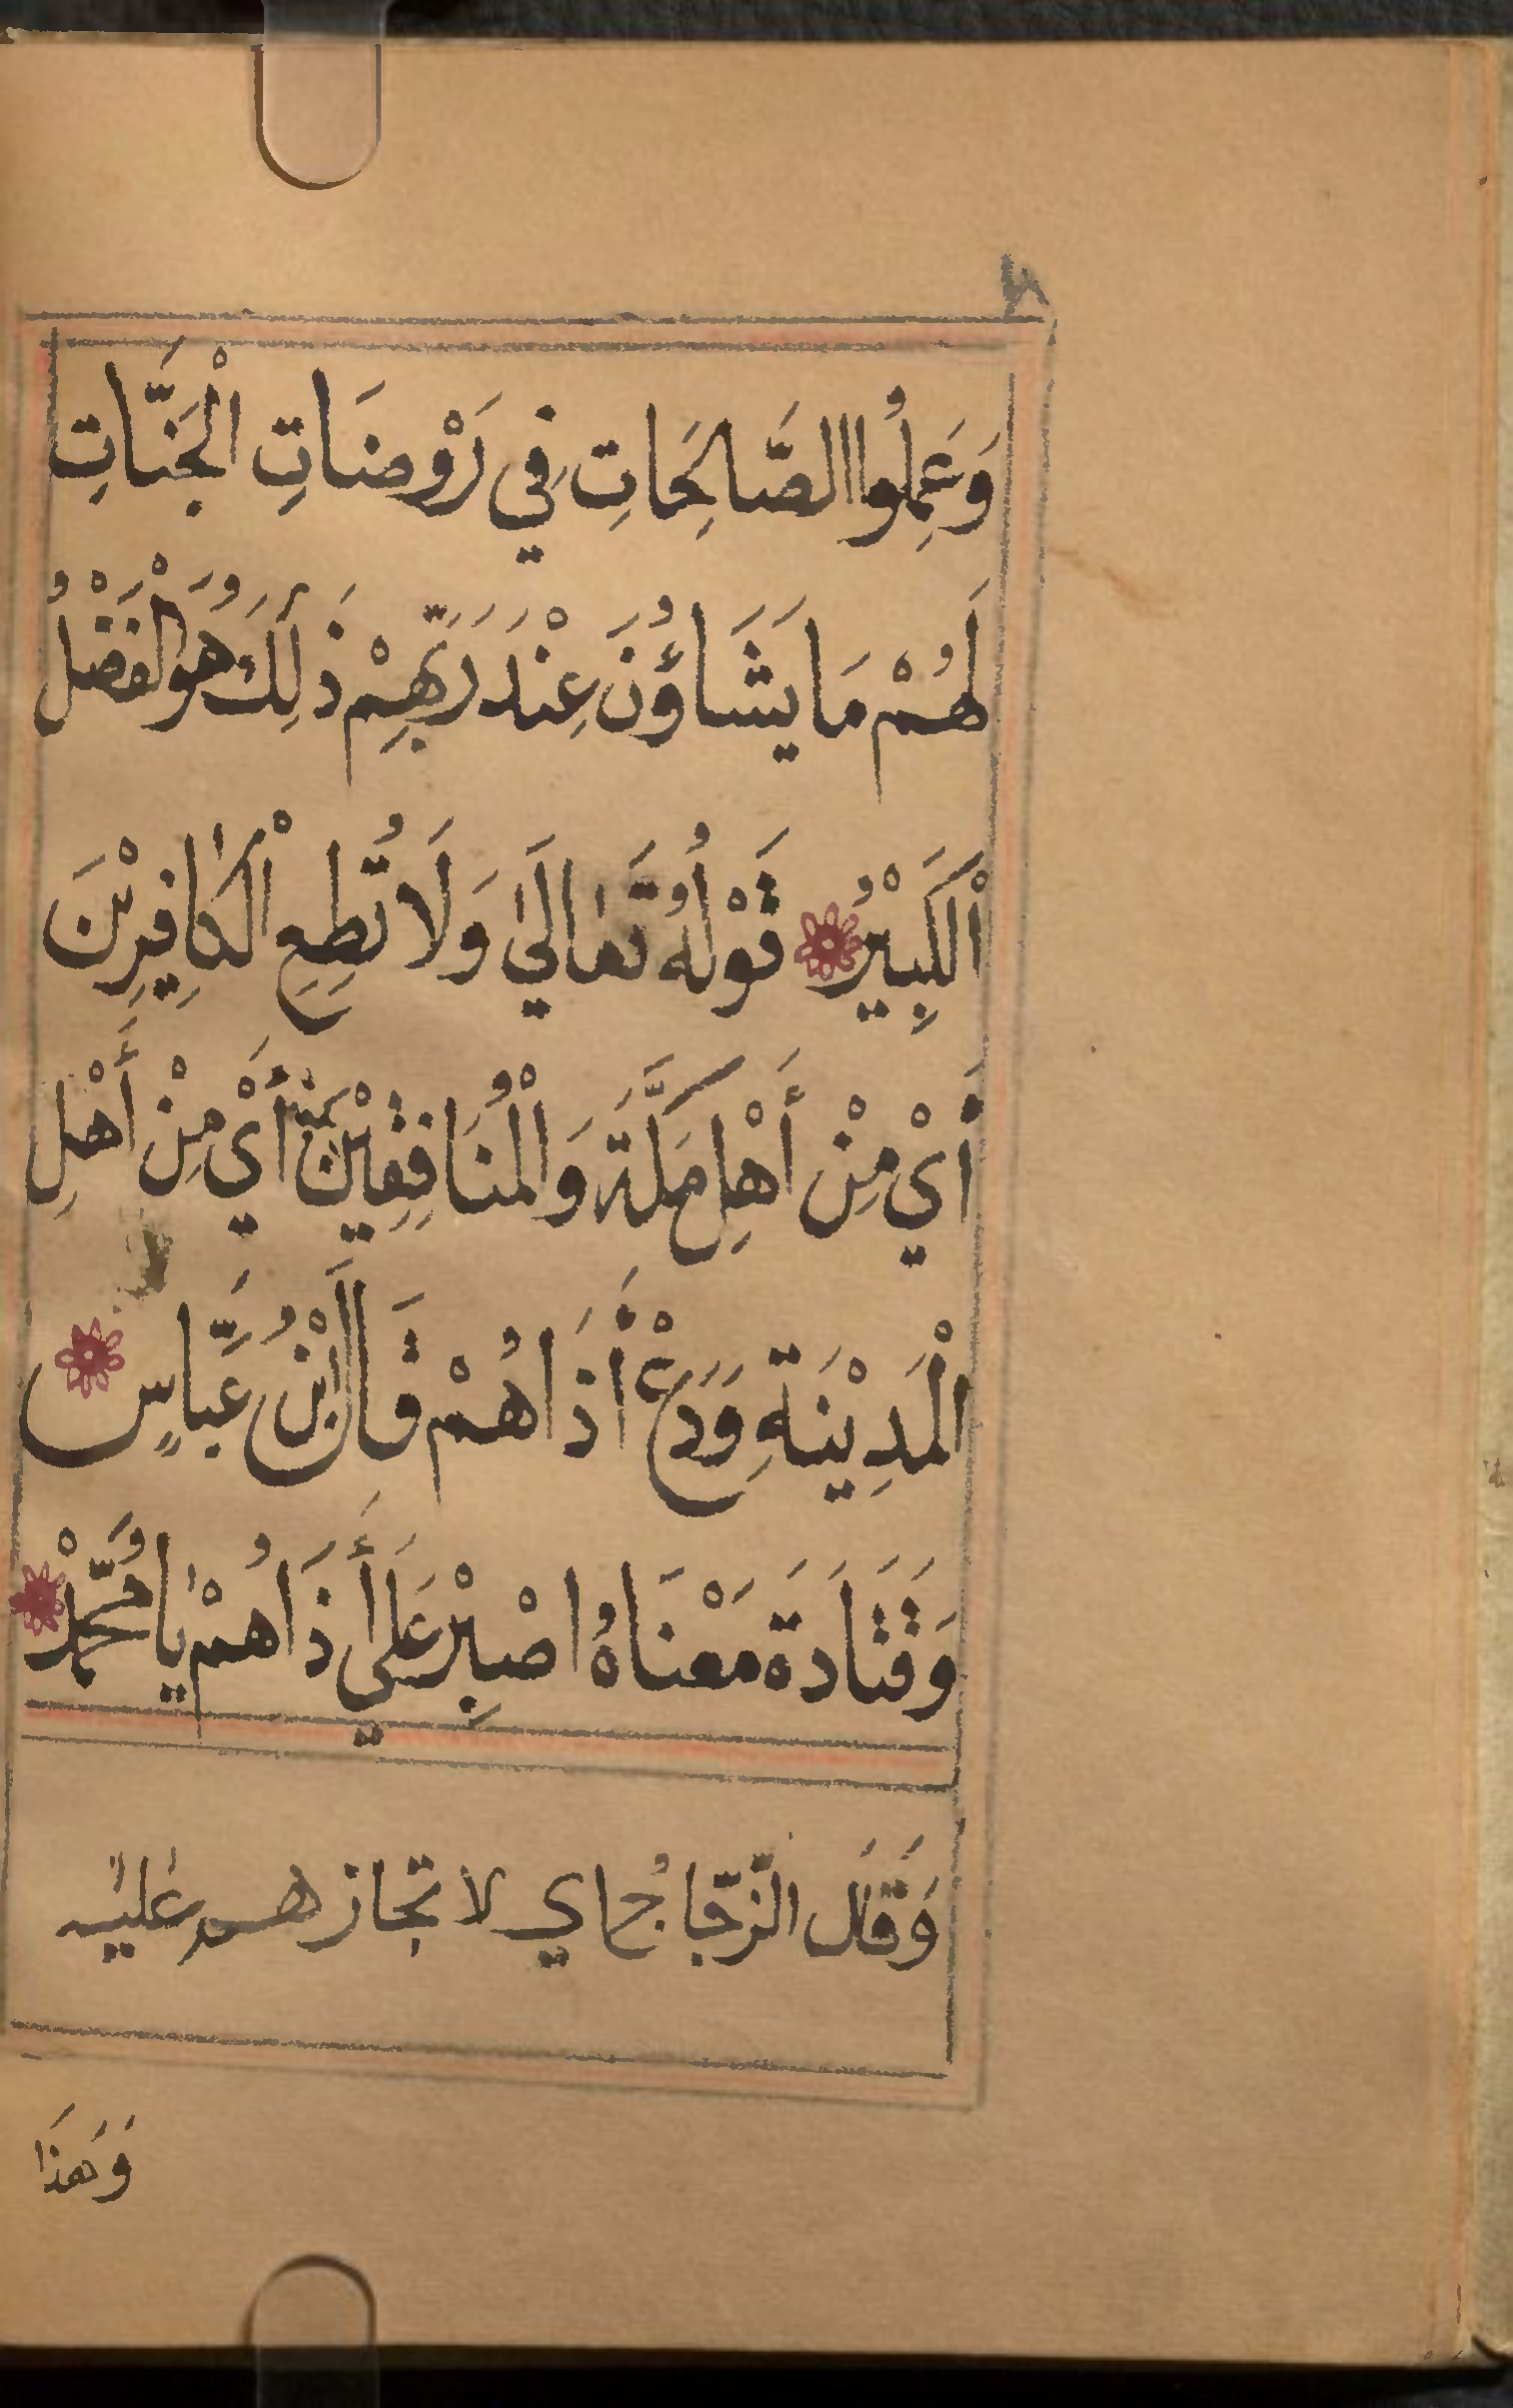 وَعَمِلُوا الصَّالِحَاتِ فِي رَوْضَاتِ الْجَنَّاتِ
لَهُمْ مَا يَشَاؤُنَ عِنْدَ رَبِّهِمْ ذَلِكَ هُوَ الْفَضْلُ
الْكَبِيْرُ قَوْلُهُ تَعَالَىٰ وَلَا تُطِعِ الْكَافِرِيْنَ
أَيْ مِنْ أَهْلِ مَكَّةَ وَالْمُنَافِقِيْنَ أَيْ مِنْ أَهْلِ
الْمَدِيْنَةِ وَدَعْ أَذَاهُمْ قَالَ ابْنُ عَبَّاسٍ
وَقَتَادَة مَعْنَاهُ اصْبِرْ عَلَى أَذَاهُمْ يَا مُحَمَّدْ
وَقَال الزَّجَّاجُ اي لا تجازهم عليه
وَهَذَا